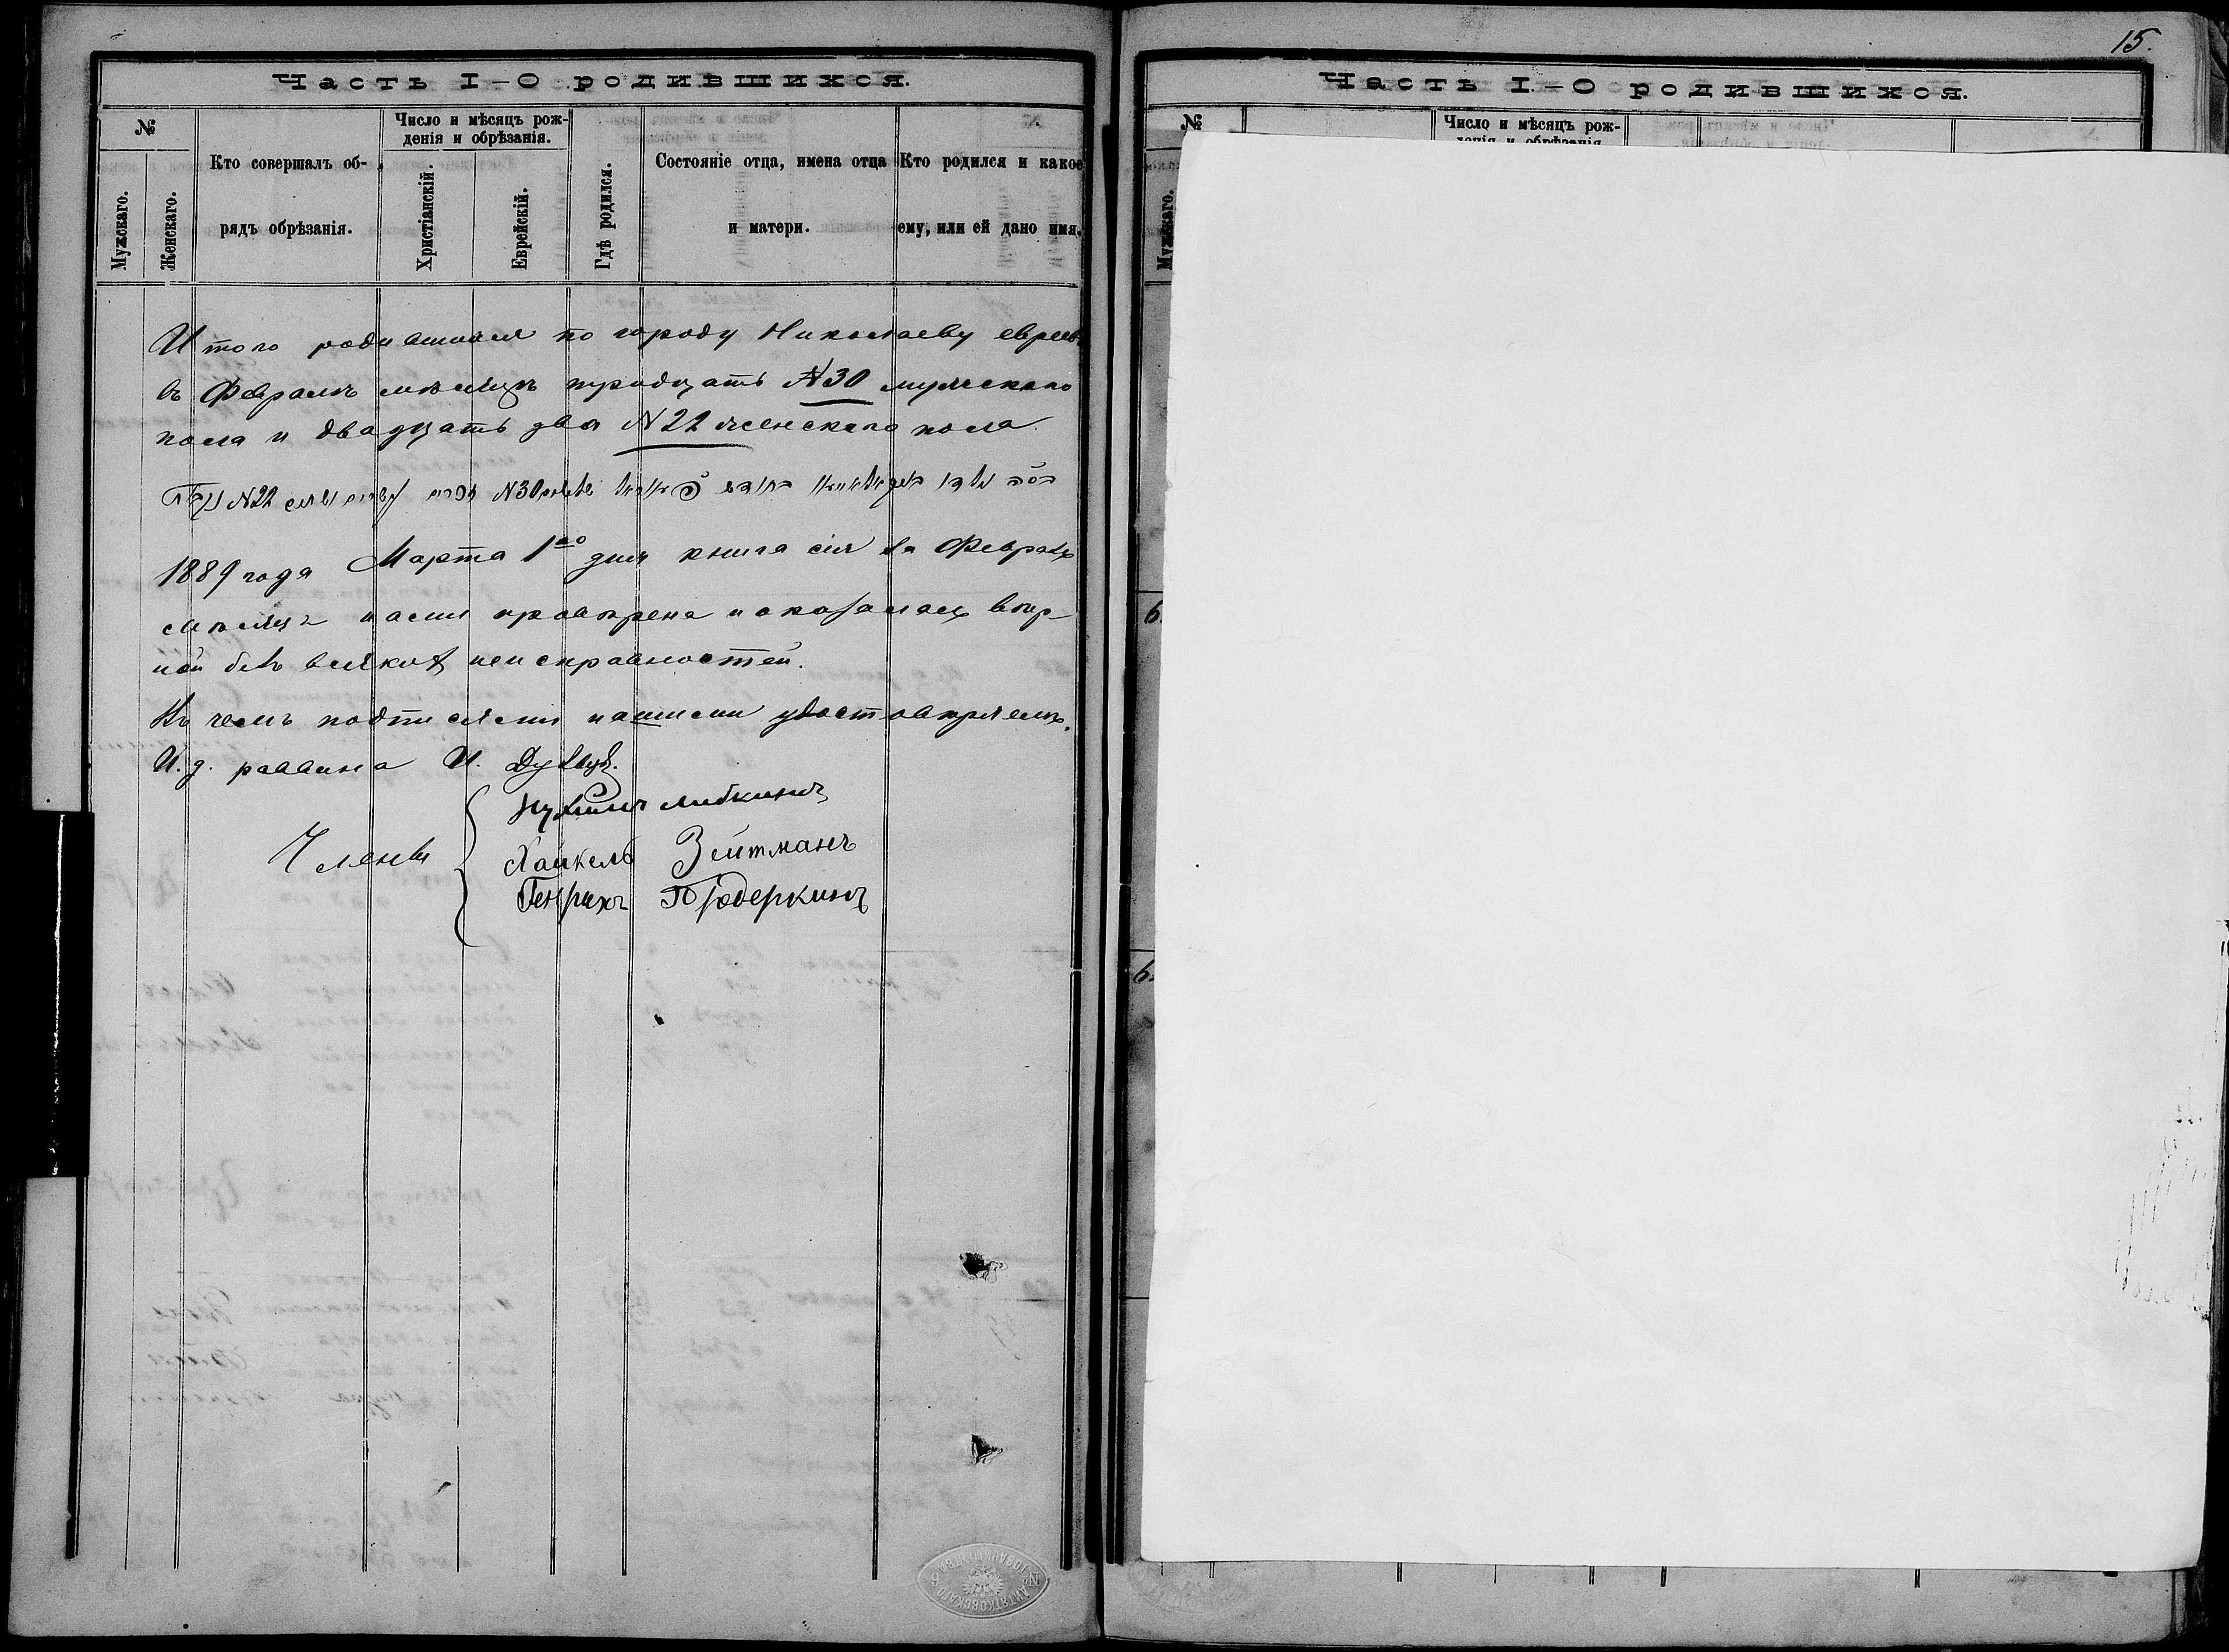 15.
Часть I—О родившихся.
№
Мужскаго.
Женскаго.
Кто совершалъ об-
рядъ обрѣзанія.
Число и мѣсяцъ рож-
денія и обрѣзанія.
Христіанскій.
Еврейскій.
Гдѣ родился.
Состояніе отца, имена отца
и матери.
Кто родился и какое
ему, или ей дано имя.
Итого родившихся по городу Николаеву евреевъ
въ Февралѣ мѣсяцѣ тридцать N30 мужескаго
пола и двадцать два N22 женскаго пола
N22 N30
1889 года Марта 1го дня книга сія за Февраль
мѣсяцъ нами проверена и оказалась вѣр-
ной безъ всякихъ неисправностей.
Въ чемъ подписями нашими удостовѣряемъ.
И. д. раввина И.
Члены
Либкинъ
Хайкель Зейтманъ
Генрихъ
Часть I.—О родившихся.
№
Число и мѣсяцъ рож-
денія и обрѣзанія
Мужскаго.